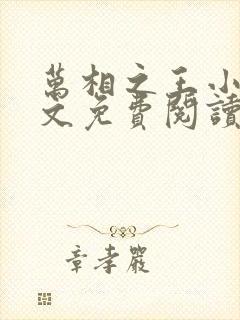 萬相之王小
文免費閱讀
章孝嚴